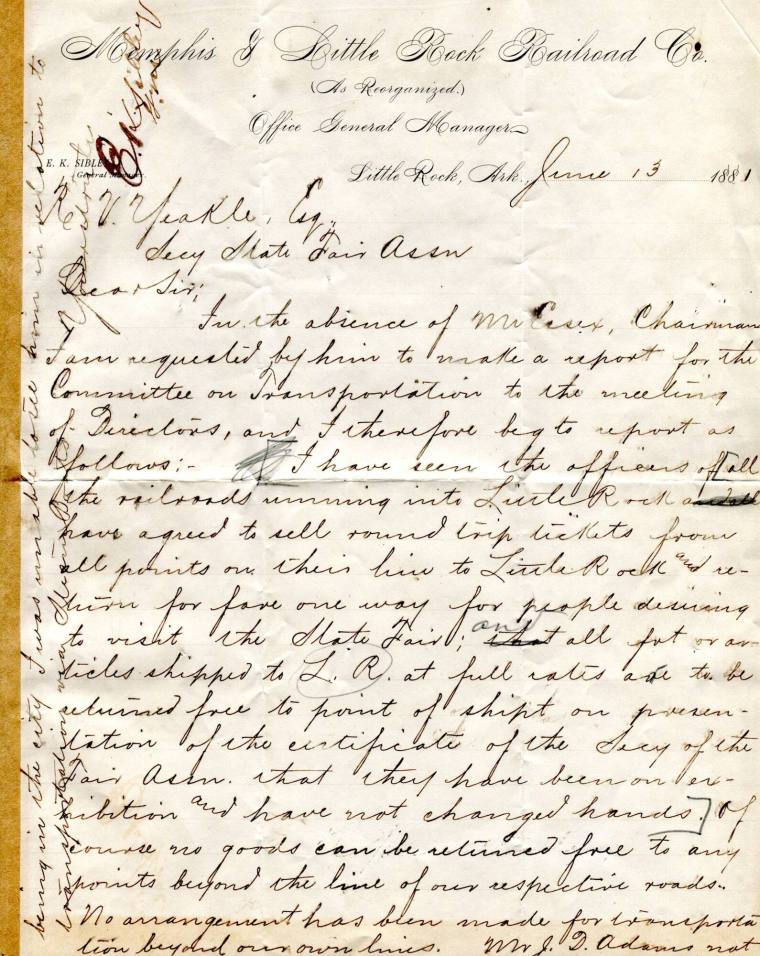 Memphis & Little Rock Railroad Co.
(As Reorganized.)
Office General Manager
E. K. SIBLEY
General Manager.
Little Rock, Ark., June 13 1881
R. V. Yeakle, Esq.,
Secy State Fair Assn
Dear Sir;
In the absence of Mr Essex, Chairman
I am requested by him to make a report for the
Committee on Transportation to the meeting
of Directors, and I therefore beg to report as
follows:- [I have seen the officers of [all
the railroads running into Little Rock and all
have agreed to sell round trip tickets from
all points on their line to Little Rock and re-
turn for fare one way for people desiring
to visit the State Fair; that and all frt or ar-
ticles shipped to L. R. at full rates are to be
returned free to point of shipt on presen-
tation of the certificate of the Secy of the
Fair Assn. that they have been on ex-
hibition and have not changed hands.] Of
course no goods can be returned free to any
points beyond the line of our respective roads.
No arrangement has been made for transporta
tion beyond our own lines. Mr J. D. Adams not
being in the city I was unable to see him in relation to
transportation via
Yours truly
E. K. Sibley